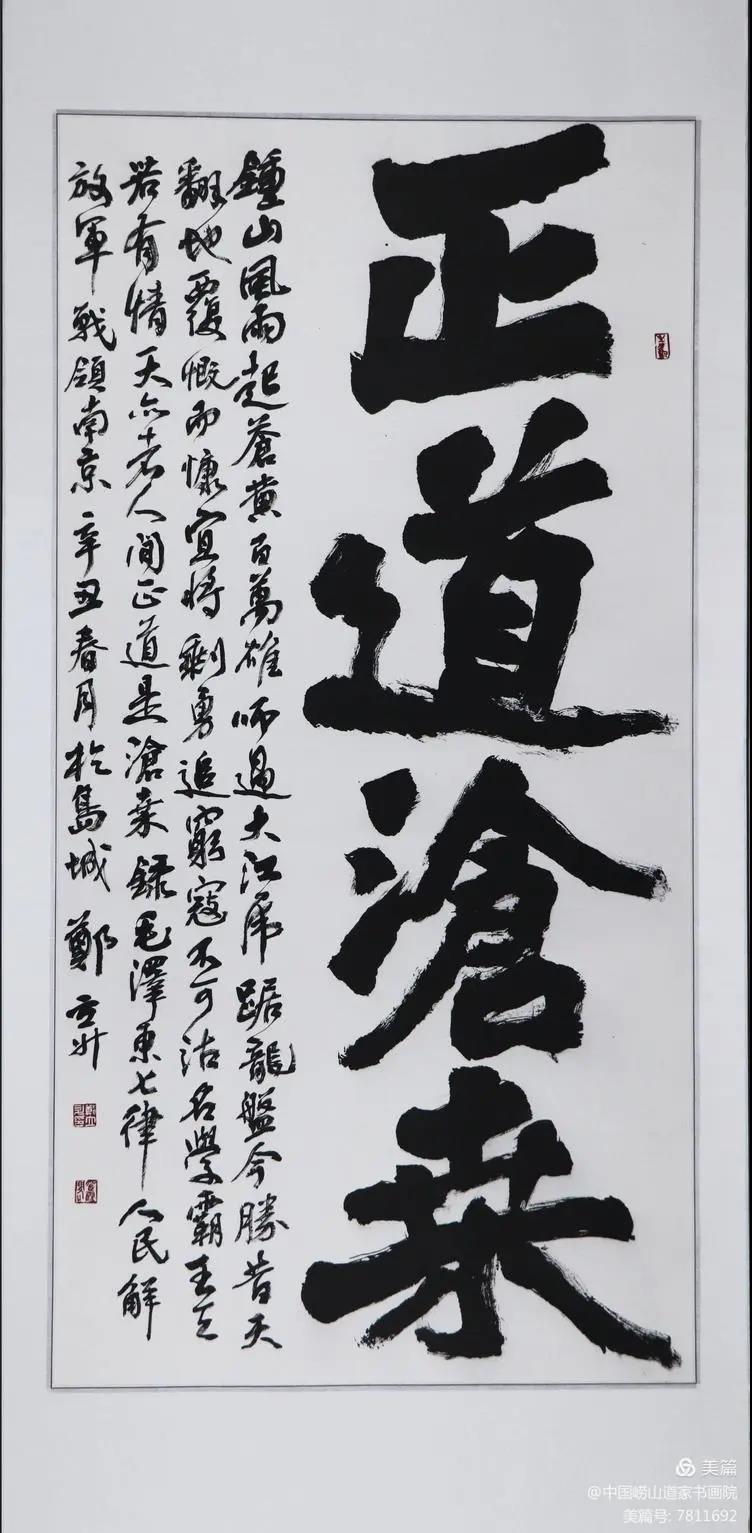 正道滄桒
鍾山風雨起蒼黃百萬雄師過大江虎踞龍盤今勝昔天
翻地覆慨而慷宜將剩勇追窮寇不可沽名學霸王天
若有情天亦老人間正道是滄桒錄毛澤東七律 人民解
放軍戰領南京 辛丑春月於島城 鄭
美篇
@中国崂山道家书画院
美篇号: 7811692